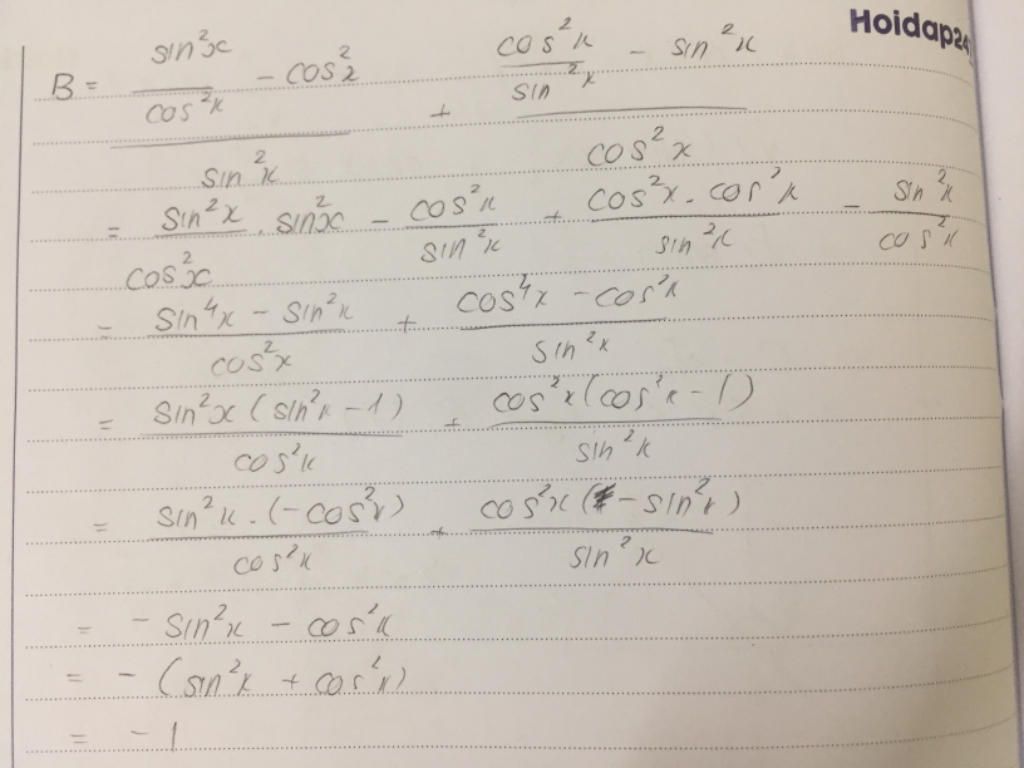 Hoidap24
B = (sin²x/cos²x - cos²x)/sin²x + (cos²x/sin²x - sin²x)/cos²x
= sin²x/cos²x . sin²x - cos²x/sin²x + cos²x . cos²x/sin²x - sin²x/cos²x
= (sin⁴x - sin²x)/cos²x + (cos⁴x - cos²x)/sin²x
= sin²x (sin²x - 1)/cos²x + cos²x (cos²x - 1)/sin²x
= sin²x . (-cos²x)/cos²x + cos²x (-sin²x)/sin²x
= - sin²x - cos²x
= - (sin²x + cos²x)
= - 1